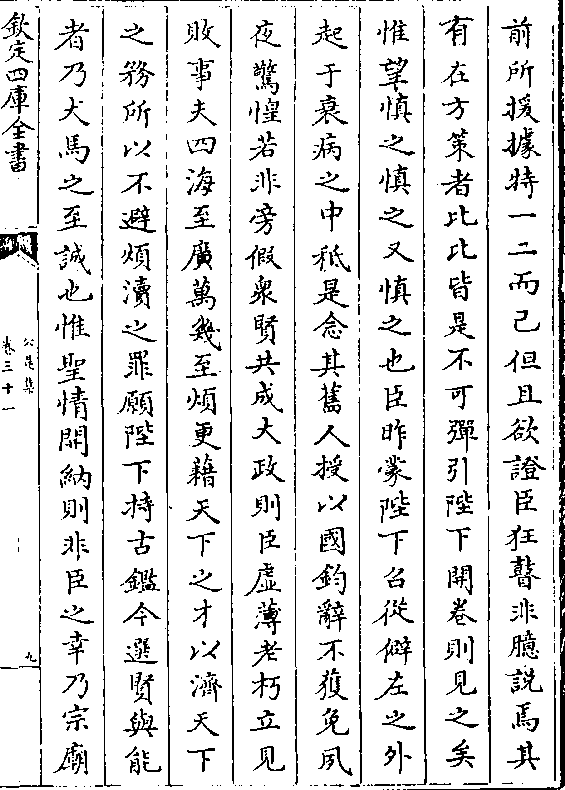 前所援據特一二而已但且欲證臣狂瞽非臆説焉其
有在方策者比比皆是不可殫引陛下開卷則見之矣
惟望慎之慎之又慎之也臣昨蒙陛下召從僻左之外
起于衰病之中秪是念其舊人授以國鈞辭不獲免夙
夜驚惶若非旁假衆賢共成大政則臣虛薄老朽立見
敗事夫四海至廣萬幾至煩更藉天下之才以濟天下
之務所以不避煩瀆之罪願陛下持古鑑今選賢與能
者乃犬馬之至誠也惟聖情開納則非臣之幸乃宗廟
欽定四庫全書
公是集
卷三十一
九